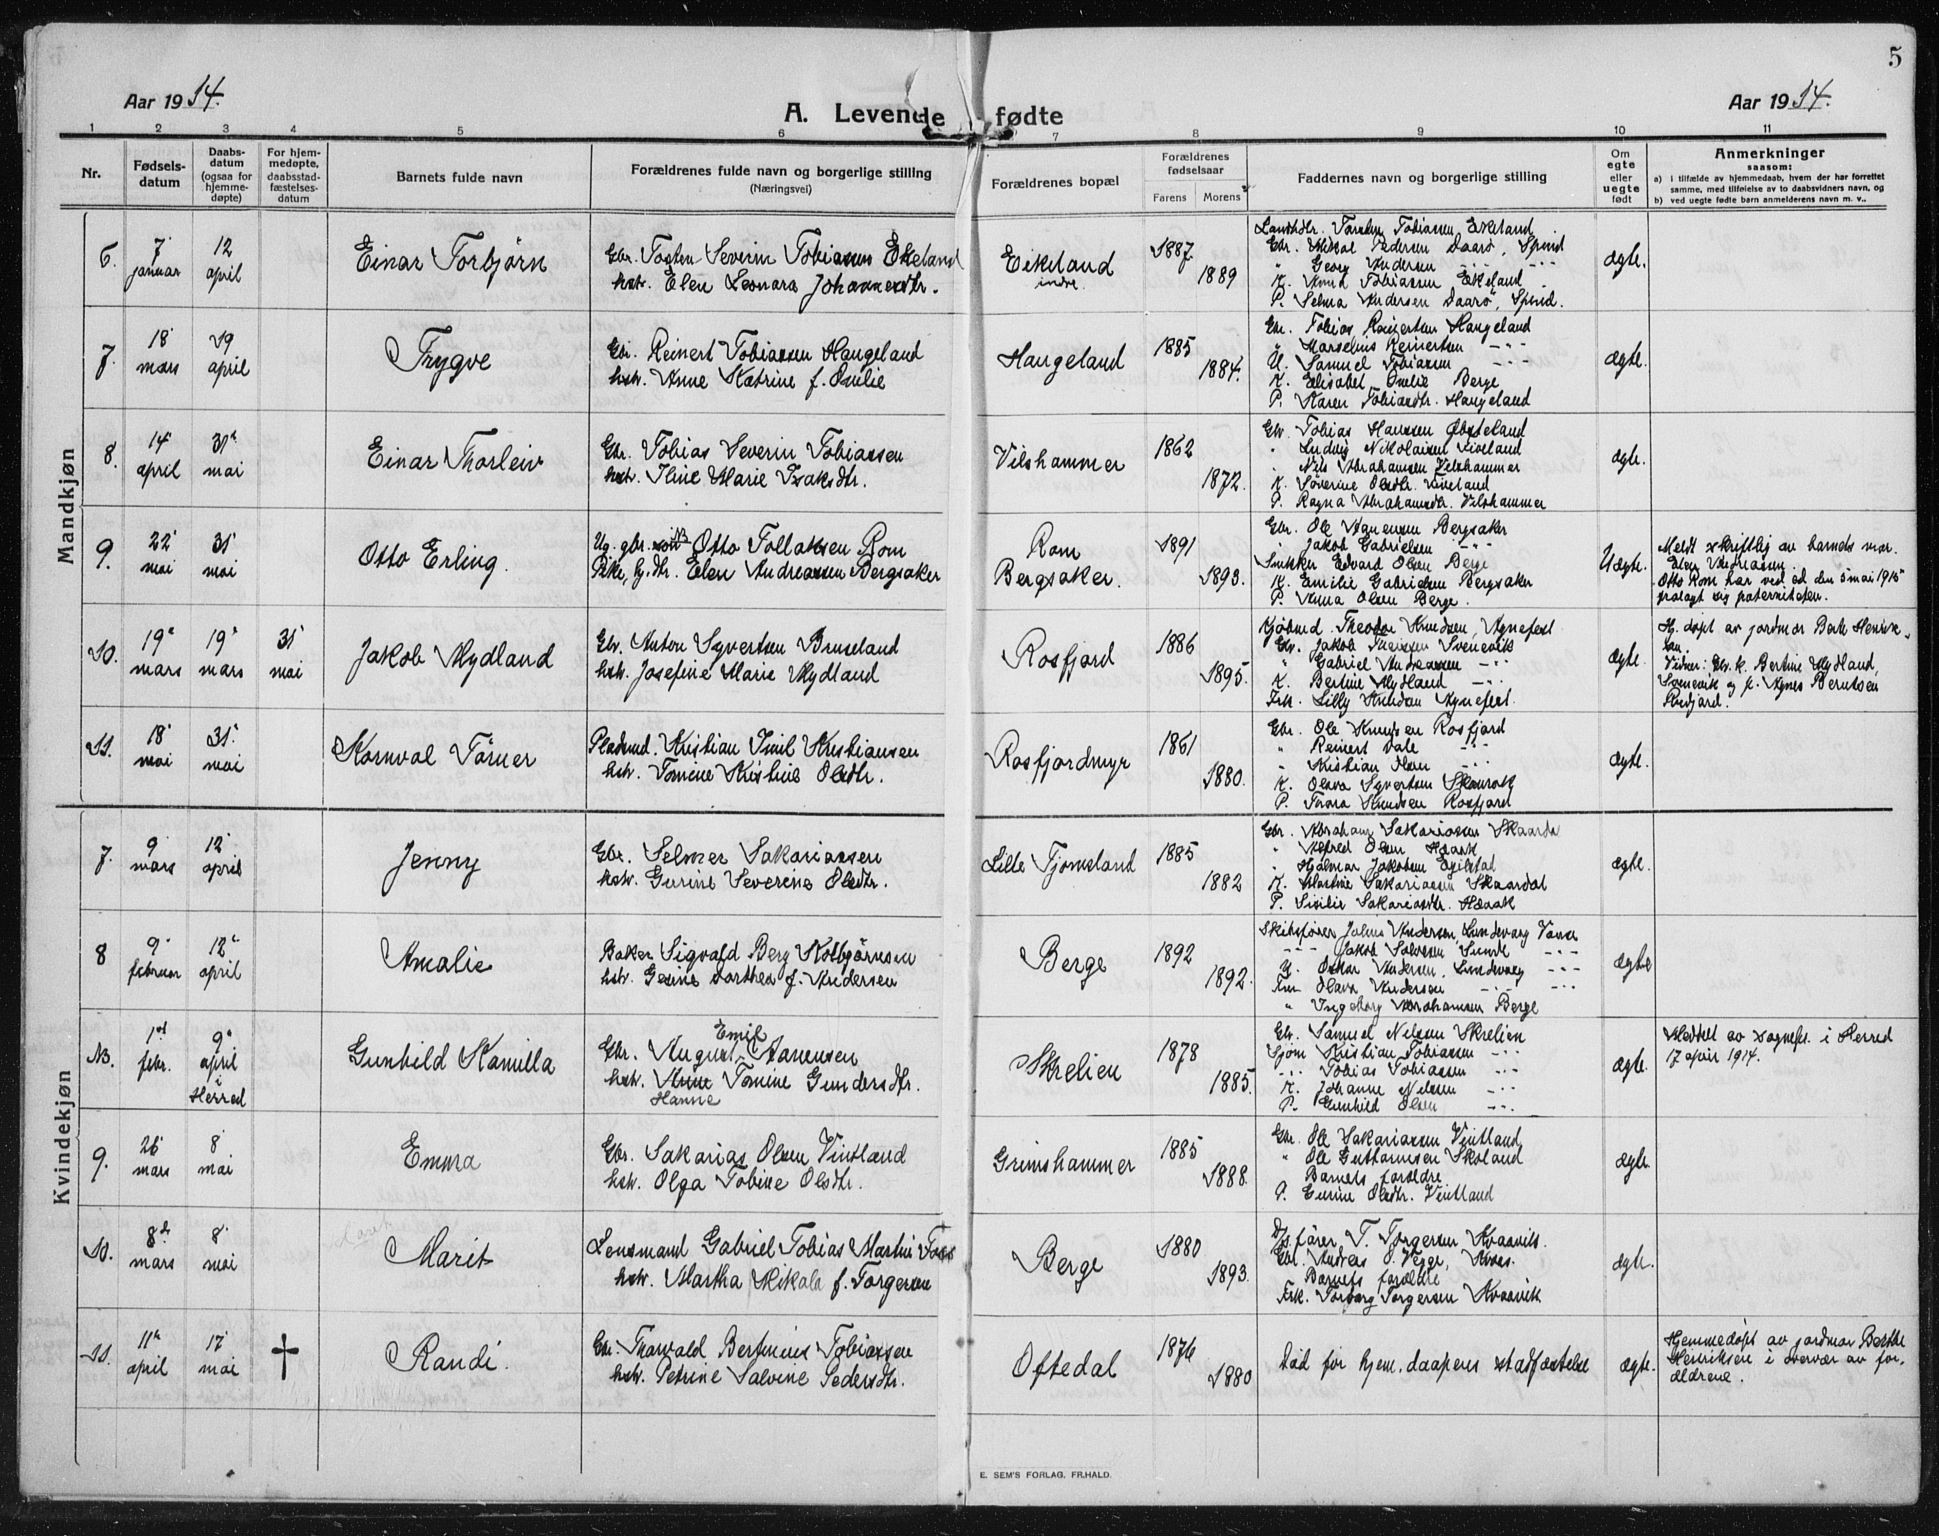 5
Aar 1914.
A. Levende fødte
Aar 1914.
1 2 3 4 5 6 7 8 9 10 11
Nr.
Fødsels-
datum
Daabs-
datum
(ogsaa for
hjemme-
døpte)
For hjem-
medøpte,
daabsstad-
fæstelses-
datum
Barnets fulde navn
Forældrenes fulde navn og borgerlige stilling
(Næringsvei)
Forældrenes bopæl
Forældrenes
fødselsaar
Farens Morens
Faddernes navn og borgerlige stilling
Om
egte
eller
uegte
født
Anmerkninger
saasom:
a) i tilfælde av hjemmedaab, hvem der har forrettet
samme, med tilføielse av to daabsvidners navn, og
b) ved uegte fødte barn anmelderens navn m. v..
Mandkjøn
6.
7
januar
12
april
Einar Torbjørn
Gbr. Severin Tobiassen Ekeland
hstr. Elen Leonora Johannesdtr.
Eikeland
indre
1887
1889
Tobiassen, Ekeland
Gbr. Pedersen Daarø, Spind
" Georg Andersen --- ---
K. Anna Tobiassen Ekeland
P. Selma Andersen Daarø, Spind.
ægte.
7.
18
mars
19
april
Trygve
Gbr. Reinert Tobiassen Haugeland
hstr. Anne Katrine f. Omlie
Haugeland
1885
1884.
Gbr. Tobias Reinertsen Haugeland
" Marselius Reinertsen ---
U. Samuel Tobiassen ---
K. Elisabet Omlie Berge
P. Karen Tobiasdtr. Haugeland
ægte.
8.
14
april
31
mai
Einar Thorleiv
Gbr. Tobias Severin Tobiassen
hstr. Iline Marie Isaksdtr.
Vilshammer
1862
1872.
Gbr. Tobias Hanssen
" Ludvig Nikolaisen
" Nils Abrahamsen Vilshammer
K. Severine Olsdtr.
P. Ragna Abrahamsdtr. Vilshammer
ægte.
9.
22
mai
31
mai
Otto Erling.
Ug. gbr. Otto Tollaksen Rom
Pike, Elen Andreassen Bergsaker
Rom
Bergsaker.
1891
1893.
Gbr. Ole Aanensen Bergsaker
" Jakob Gabrielsen ---
Snikker Edvard Olsen Berge
K. Emilie Gabrielsen Bergsaker
P. Anna Olsen Berge.
Uægte.
Meldt skriftlig av barnets mor.
Elen Andreassen.
Otto Rom har ved ed den 5 mai 1915
fralagt sig paterniteten.
10.
19
mars
19
mars
31
mai
Jakob Mydland
Gbr. Anton Syvertsen Bruseland
hstr. Josefine Marie Mydland
Rosfjord
1886
1895.
Kjøbmd. Theodor Knudsen, Agnefest
Gbr. Jakob Svenevik
" Gabriel Andreassen ---
K. Bertine Mydland ---
Frk. Lilly Knudsen Agnefest.
ægte.
H. døpt av jordmor Berte Henrik-
sen.
Vidner: Gbr. k. Bertine Mydland,
Svenevik og p. Agnes Berntsen
Rosfjord.
11.
18
mai
31
mai
Kornval Tørner
Pladsmd. Kristian Emil Kristiansen
hstr. Tomine Kristine Olsdtr.
Rosfjordmyr
1861
1880.
Gbr. Ole Knudsen Rosfjord
" Reinert Dale ---
" Kristian Olsen ---
K. Olava Syvertsen
P. Tora Knudsen Rosfjord
ægte.
Kvindekjøn
7.
9
mars
12
april
Jenny
Gbr. Selmer Sakariassen
hstr. Gurine Severine Olsdtr.
Lille Tjomsland
1885
1882
Gbr. Abraham Sakariassen Skaardal
" Alfred Olsen
" Hjalmar Jakobsen Egilstad
K. Martine Sakariassen Skaardal
P. Sisilie Sakariasdtr.
ægte.
8
9
februar
12
april
Amalie
Baker Sigvald Berg Kolbjørnsen
hstr. Gesine Dorthea f. Andersen
Berge
1892
1892.
Skibsfører Julius Andersen Lundevaag Vanse
--- Jakob Salvesen Sunde ---
U. Oskar Andersen, Lundevaag ---
Fru Olava Andersen --- ---
" Ingeborg Abrahamsen Berge
ægte
NB.
1st
febr.
9
april
i
Herred
Gunhild Kamilla
Emil
Gbr. August Aanensen
hstr. Anne Tomine Gundersdtr.
Hanne
Skrelien
1878
1885.
Gbr. Samuel Nilssen Skrelien
Sjøm. Kristian Tobiassen ---
--- Tobias Tobiassen ---
K. Johanne Nilssen ---
P. Gunhild Olsen ---
ægte.
Meddelt av sognepr. i Herred
17 april 1914.
9.
26
mars
8
mai
Emma
Gbr. Sakarias Olsen Vintland
hstr. Olga Tobine Olsdtr.
Grimshammer
1885
1888.
Gbr. Ole Sakariassen Vintland
" Ole Guttormsen Skoland
Barnets forældre
P. Gurine Olsdtr. Vintland
ægte.
10.
8de
mars
8
mai
Marit
Lensmand Gabriel Tobias Martin Foss
hstr. Martha Mikala f. Torgersen
Berge
1880
1893.
D/s fører T. Torgersen Kvaavik.
Gbr. Andreas O. Vegge, Kvaas.
Barnets forældre
Frk. Torborg Torgersen Kvaavik
ægte.
11.
11
april
17
mai
†
Randi.
Gbr. Thorvald Bertinius Tobiassen
hstr. Petrine Salvine Pedersdtr.
Oftedal
1876
1880
Død før hjem. daapens stadfæstelse
ægte.
Hjemmedøpt av jordmor Berthe
Henriksen i overvær av for-
ældrene.
E. SEM'S FORLAG, FR.HALD.